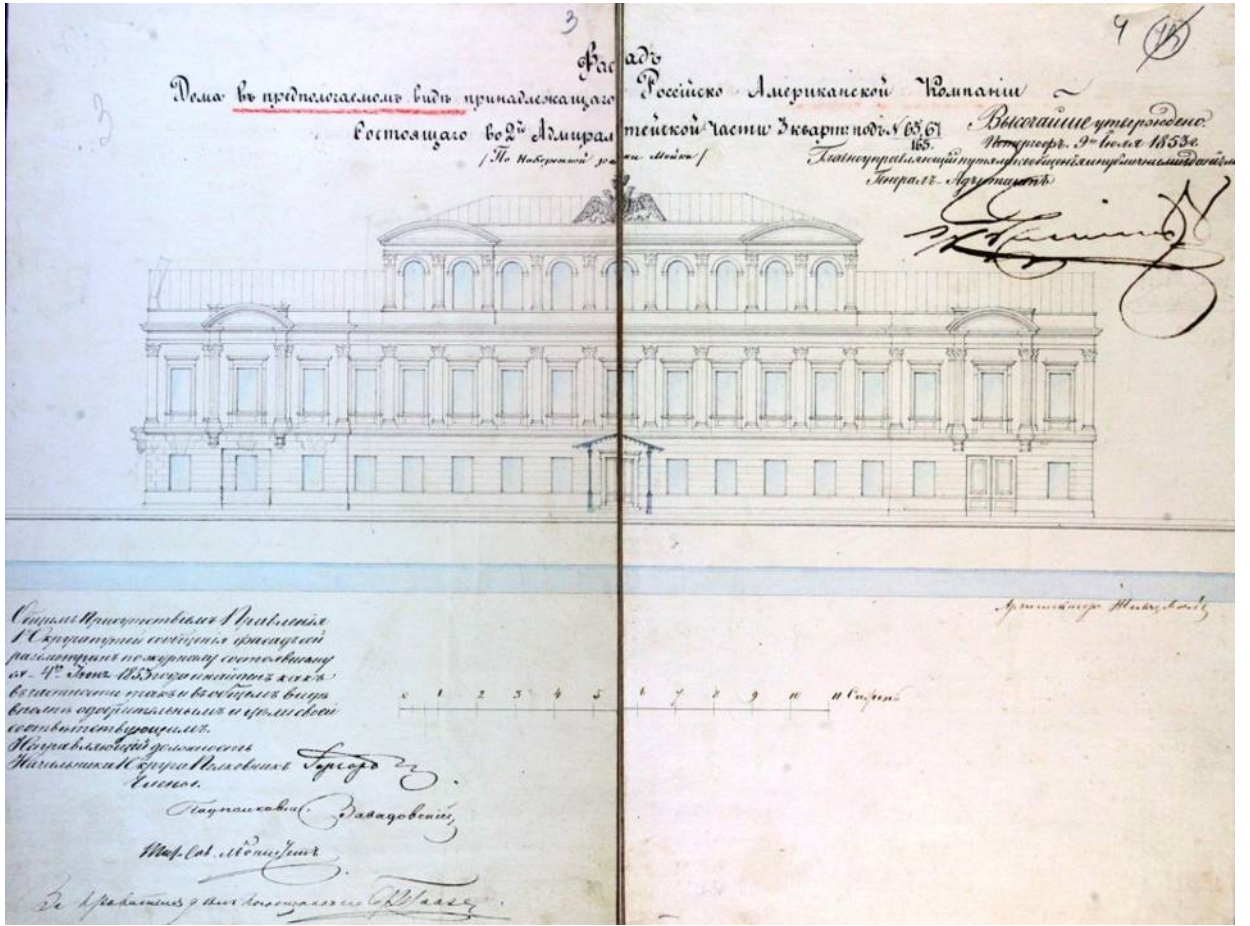 3
4
Фасадъ
Дома въ предпологаемомъ видѣ принадлежащаго Россійско Американской Компаніи
Состоящаго во 2й Адмиралтейской части 3 кварт: подъ № 65, 67
165.
/ По Набережной рѣки Мойки /
Высочайше утверждено.
Петергофъ. 9го Іюля 1853 г.
Главноуправляющій путями сообщенія и публичными зданіями
Генералъ-Адъютантъ
3
Архитекторъ
Общимъ Присутствіемъ Правленія
1 Округа путей сообщенія фасадъ сей
разсмотрѣнъ по журналу состоявшему
4го 1853 года и найденъ какъ
въ частности такъ и въ общемъ видѣ
вполнѣ одобрительнымъ и цѣли своей
соотвѣтствующимъ.
0 1 2 3 4 5 6 7 8 9 10 11 Саженъ
Исправляющій должность
Начальника 1 Округа Полковникъ
Члены.
Подполковникъ Завадовскій